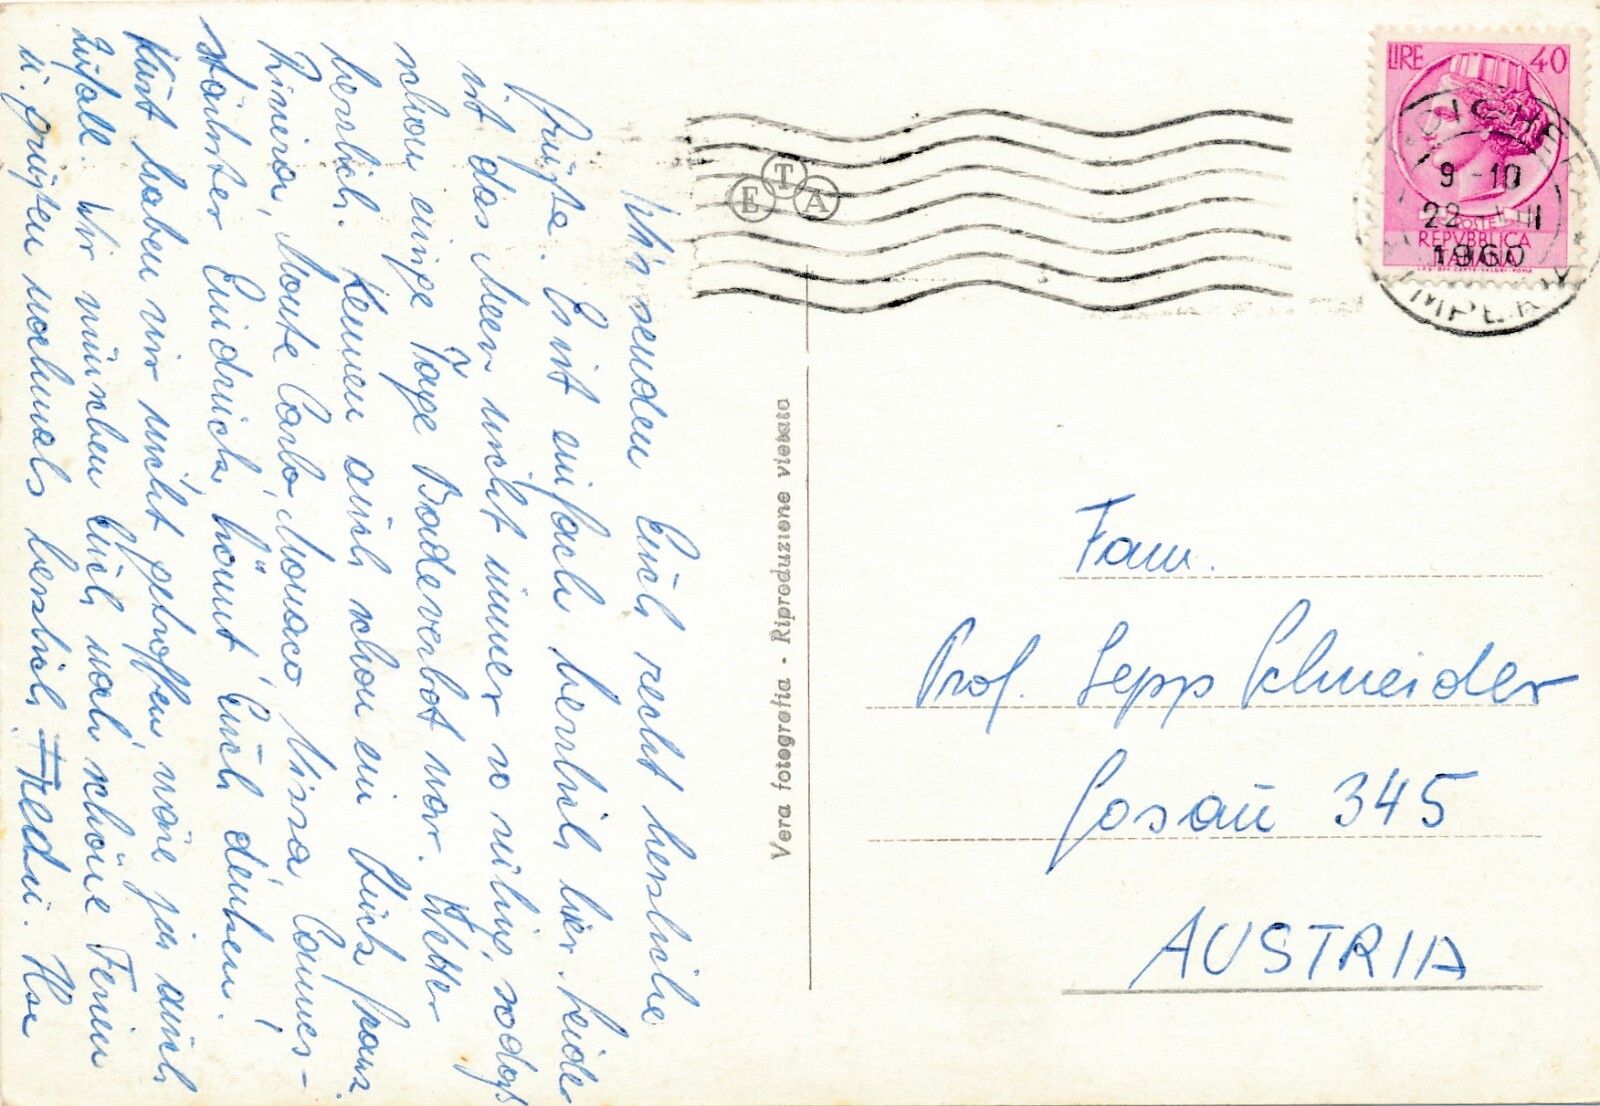 Wir senden Euch recht herzliche
Grüße. Es ist einfach herrlich hier. Leider
ist das Meer nicht immer so ruhig, sodaß
schon einige Tage Badeverbot war. Wetter
herrlich. Kennen auch schon ein Stück franz.
Riviera, Monte Carlo, Monaco, Nizza, Cannes –
stärkster Eindruck, könnt Euch denken!
Kurt haben wir nicht getroffen, wäre ja auch
Zufall. Wir wünschen Euch noch schöne Ferien
u. grüßen nochmals herzlich Fredi. Ilse
Vera fotografia - Riproduzione vietata
ETA
LIRE 40
POSTE
REPVBBLICA
ITALIANA
9 - 10
22
1960
IMPERIA
Fam.
Prof. Sepp Schneider
Gosau 345
AUSTRIA